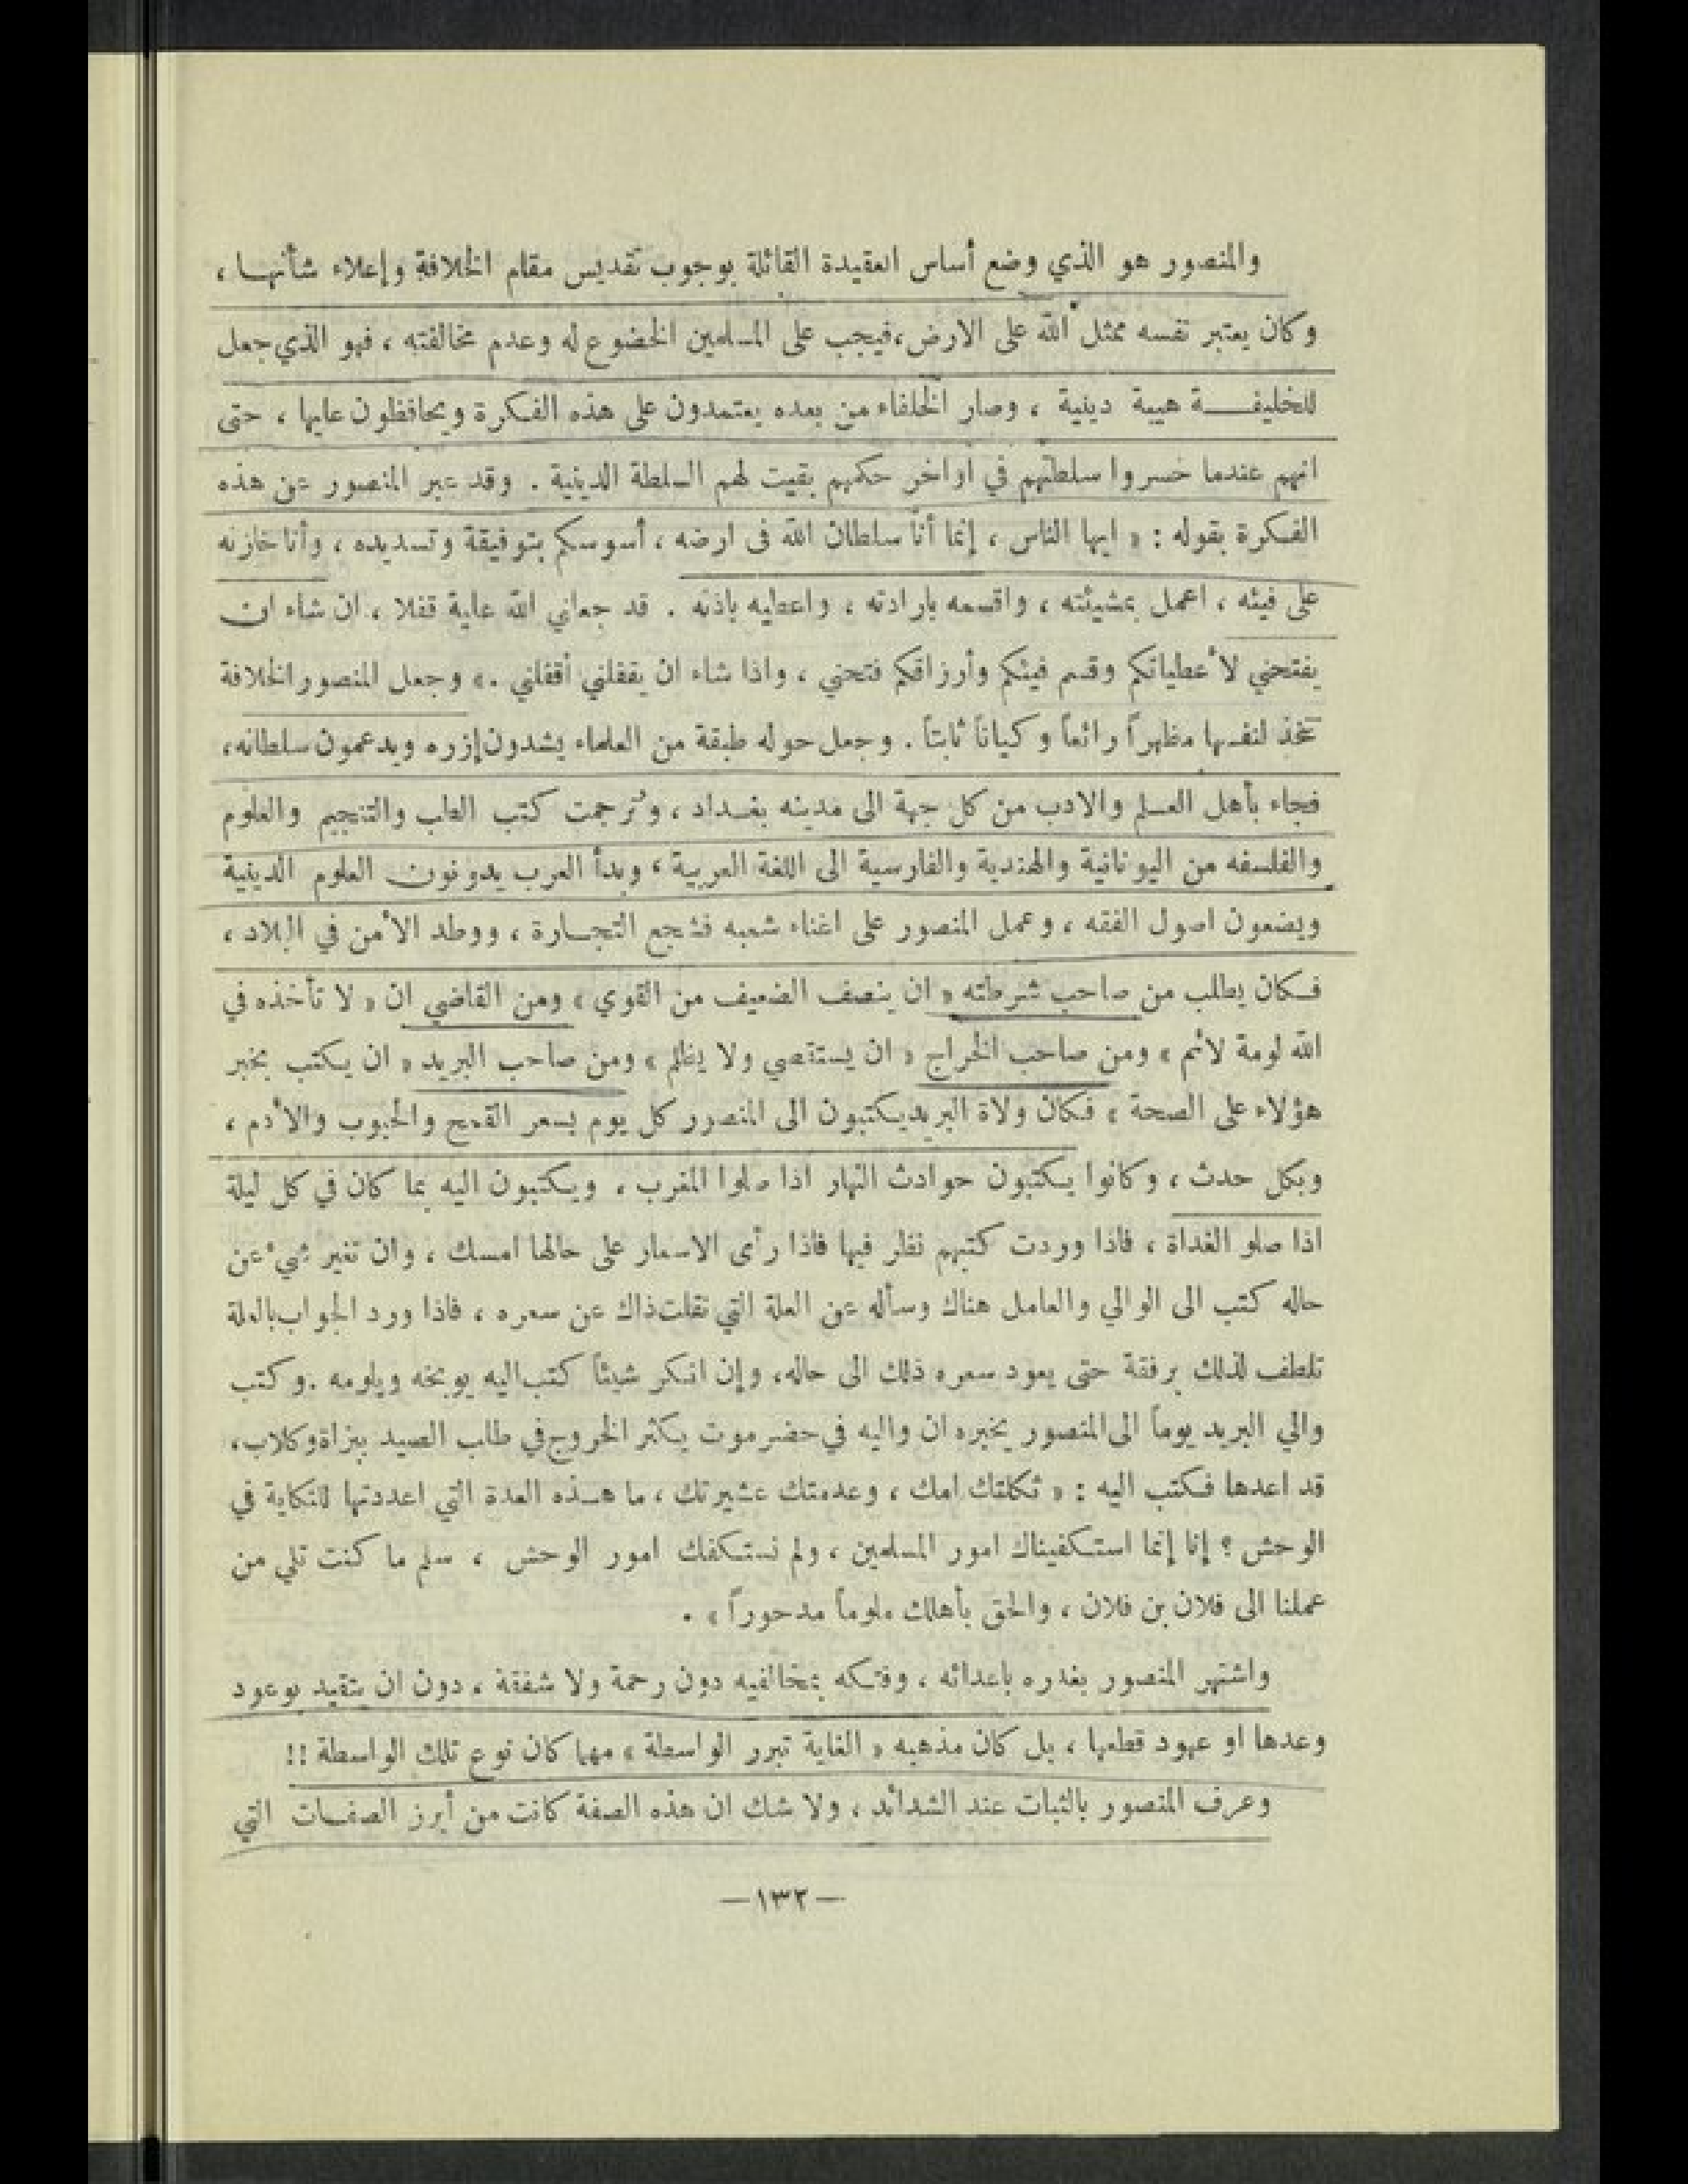 والمنصور هو الذي وضع أساس العقيدة القائلة بوجوب تقديس مقام الخلافة وإعلاء شأنها ،
وكان يعتبر نفسه ممثل الله على الارض ،فيجب على المسلمين الخضوع له وعدم مخالفته ، فهو الذي جعل
للخليفـــة هيبة دينية ، وصار الخلفاء من بعده يعتمدون على هذه الفكرة ويحافظون عليها ، حتى
انهم عندما خسروا سلطتهم في اواخر حكمهم بقيت لهم السلطة الدينية . وقد عبر المنصور عن هذه
الفكرة بقوله : « ايها الناس ، إنما أنا سلطان الله فى ارضه ، أسوسكم بتوفيقة وتسديده ، وأنا خازنه
على فيئه ، اعمل بمشيئته ، واقسمه بارادته ، واعطيه باذنه . قد جعلني الله علية قفلا ، ان شاء ان
يفتحني لأعطياتكم وقسم فيئكم وأرزاقكم فتحني ، واذا شاء ان يقفلني أقفلني .» وجعل المنصور الخلافة
تتخذ لنفسها مظهراً رائعاً وكياناً ثابتاً . وجعل حوله طبقة من العلماء يشدون إزره ويدعمون سلطانه،
فجاء بأهل العـلم والادب من كل جهة الى مدينه بغـداد ، وتُرجمت كتب الطب والتنجيم والعلوم
والفلسفه من اليونانية والهندية والفارسية الى اللغة العربية ، وبدأ العرب يدونون العلوم الدينية
ويضعون اصول الفقه ، وعمل المنصور على اغناء شعبه فشجع التجـارة ، ووطد الأمن في البلاد ،
فـكان يطلب من صاحب شرطته « ان ينصف الضعيف من القوي » ومن القاضي ان « لا تأخذه في
الله لومة لائم » ومن صاحب الخراج « ان يستقصي ولا يظلم » ومن صاحب البريد « ان يكتب بخبر
هؤلاء على الصحة » فـكان ولاة البريد يكتبون الى المنصور كل يوم بسعر القمح والحبوب والأدم ،
وبكل حدث ، وكانوا يـكتبون حوادث النهار اذا صلوا المغرب ، ويـكتبون اليه بما كان في كل ليلة
اذا صلو الغداة ، فاذا وردت كتبهم نظر فيها فاذا رأى الاسعار على حالها امسك ، وان تغير شيء عن
حاله كتب الى الوالي والعامل هناك وسأله عن العلة التي نقلت ذاك عن سعره ، فاذا ورد الجواب بالعلة
تلطف لذلك برفقة حتى يعود سعره ذلك الى حاله، وإن انـكر شيئاً كتب اليه يوبخه ويلومه .وكتب
والي البريد يوماً الى المنصور يخبره ان واليه في حضرموت يـكثر الخروج في طلب الصيد ببزاة وكلاب،
قد اعدها فـكتب اليه : « ثكلتك امك ، وعدمتك عشيرتك ، ما هـذه العدة التي اعددتها للنكاية في
الوحش ؟ إنا إنما استـكفيناك امور المسلمين ، ولم نستـكفك امور الوحش ، سلم ما كنت تلي من
عملنا الى فلان بن فلان ، والحق بأهلك ملوماً مدحوراً » .
واشتهر المنصور بغدره باعدائه ، وفتـكه بمخالفيه دون رحمة ولا شفقة ، دون ان يتقيد بوعود
وعدها او عهود قطعها ، بل كان مذهبه « الغاية تبرر الواسطة » مهما كان نوع تلك الواسطة !!
وعرف المنصور بالثبات عند الشدائد ، ولا شك ان هذه الصفة كانت من أبرز الصفـات التي
—١٣٢—